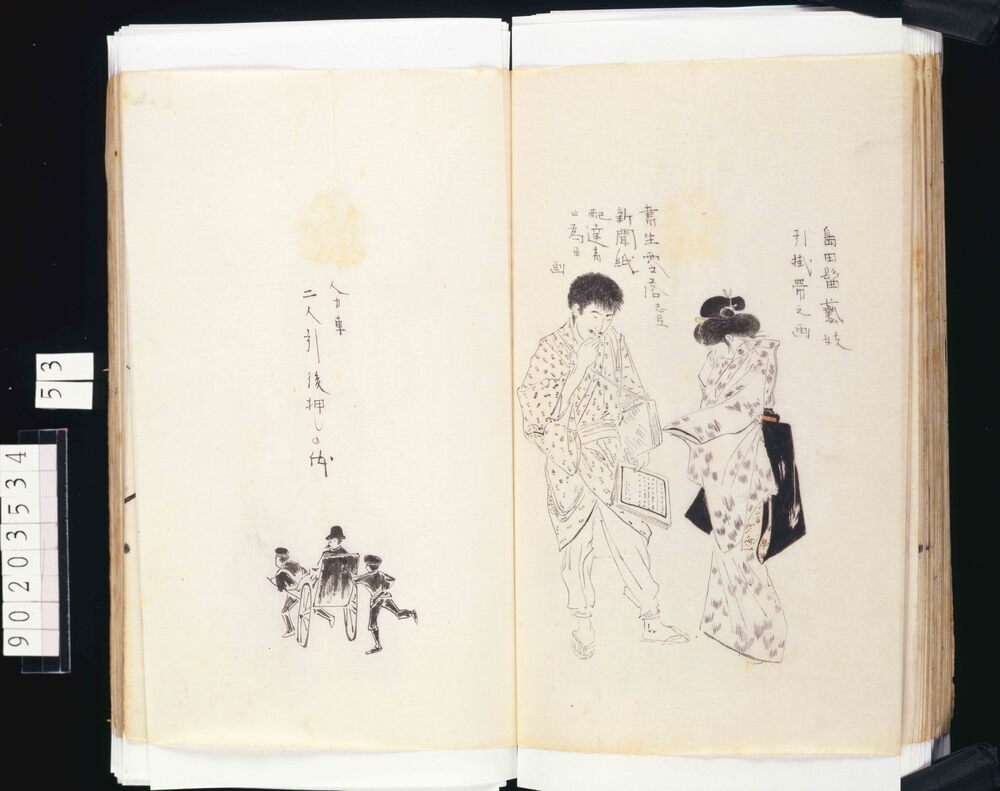 島田髷藝妓
引掛帯之画
書生零落シ
新聞紙
配達者
ト為ル
画
人力車
二人引後押しの体
53
90203534